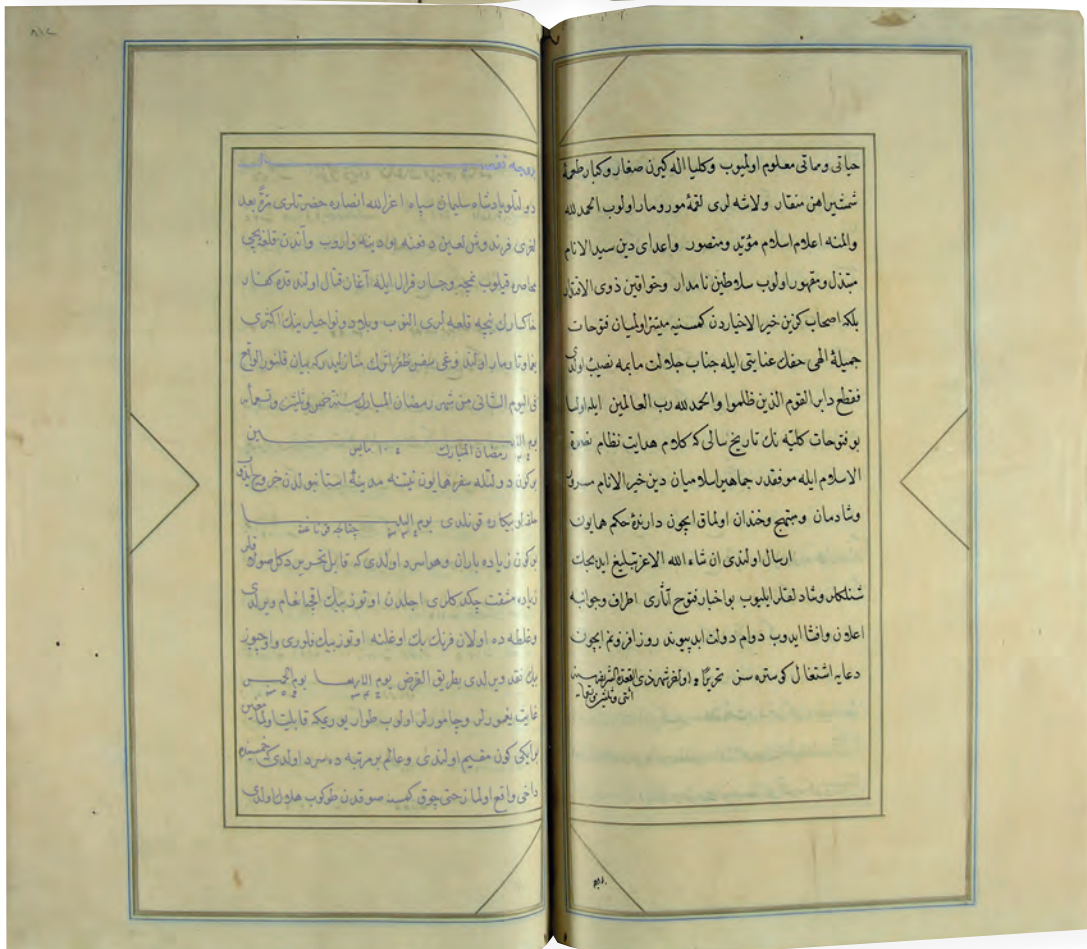 حیاتی ومماتی معلوم اولمیوب وکلیا اله کیرن صغار وکبار طعمهٔ
شمشیر اهن منقار ولاشه لری لقمهٔ مور ومار اولوب الحمد لله
والمنه اعلام اسلام مؤید ومنصور واعدای دین سید الانام
مبتذل ومقهور اولوب سلاطین نامدار وخواقین ذوی الاقتدار
بلکه اصحاب کزین خیر الاخیاردن کمسنیه میسر اولمیان فتوحات
جمیلهٔ الهی حقک عنایتی ایله جناب جلالت مابمه نصیب اولدی
فقطع دابر القوم الذین ظلموا والحمد لله رب العالمین ایله اولسا
بو فتوحات کلیه نك تاریخ سالی که کلام هدایت نظام نصرة
الاسلام ایله موفقدر جماهیر اسلامیان دین خیر الانام مسرور
وشادمان ومبتهج وخندان اولماق ایچون دارندهٔ حکم همایون
ارسال اولندی ان شاء الله الاعز تبلیغ ایدیجك
شنلکلر وشادلقلر ایلیوب بو اخبار فتوح آثاری اطراف وجوانبه
اعلان وافشا ایدوب دوام دولت ابد پیوند روز افزونم ایچون
دعایه اشتغال کوستره سن تحریرًا فی اواخر شهر ذی القعدة الشریفه سنه
اثنی وثلثین وتسعمایه
دولتلو پادشاه سلیمان سپاه اعز الله انصاره حضرتلری مرةً بعد
اخری فرندوش لعین دفعنه بودینه واروب وآندن قلعهٔ بچی
محاصره قیلوب نمچه وچسار قرال ایله آغاز قتال اولندقده کفار
خاکسارك نیچه قلعه لری النوب وبلاد ونواحیلرینك اکثری
یغما وتارومار اولندوغی سفر ظفر اثرك منازلیدر که بیان قلنور الواقع
فی الیوم الثانی من شهر رمضان المبارك سنة خمس وثلثین وتسعمایه
یوم الاثنین
رمضان المبارك ۱۰ مایس
بوکون دولتله سفر همایون نیتنه مدینهٔ استانبولدن خروج ایدوب
حلقه لو بیکاره قونلدی یوم الثلثا
بوکون زیاده باران وهوا سرد اولدی که قابل تحریر دکل سواد قلر
زیاده مشقت چکدکلری اجلدن اوتوز بیك اقچا انعام ویرلدی
وغلطه ده اولان فرنك بك اوغلنه اوتوز بیك فلوری واوچیوز
بیك نقد ویرلدی بطریق القرض یوم الاربعا یوم الخمیس
غایت یغمورلر وچامورلر اولوب طوار یوریمکه قابلیت اولما مغین
بو ایکی کون مقیم اولندی وعالم بر مرتبه ده سرد اولدی که خمسینده
دخی واقع اولماز حتی چوق کمسنه صوقدن طوکوب هلاك اولدی